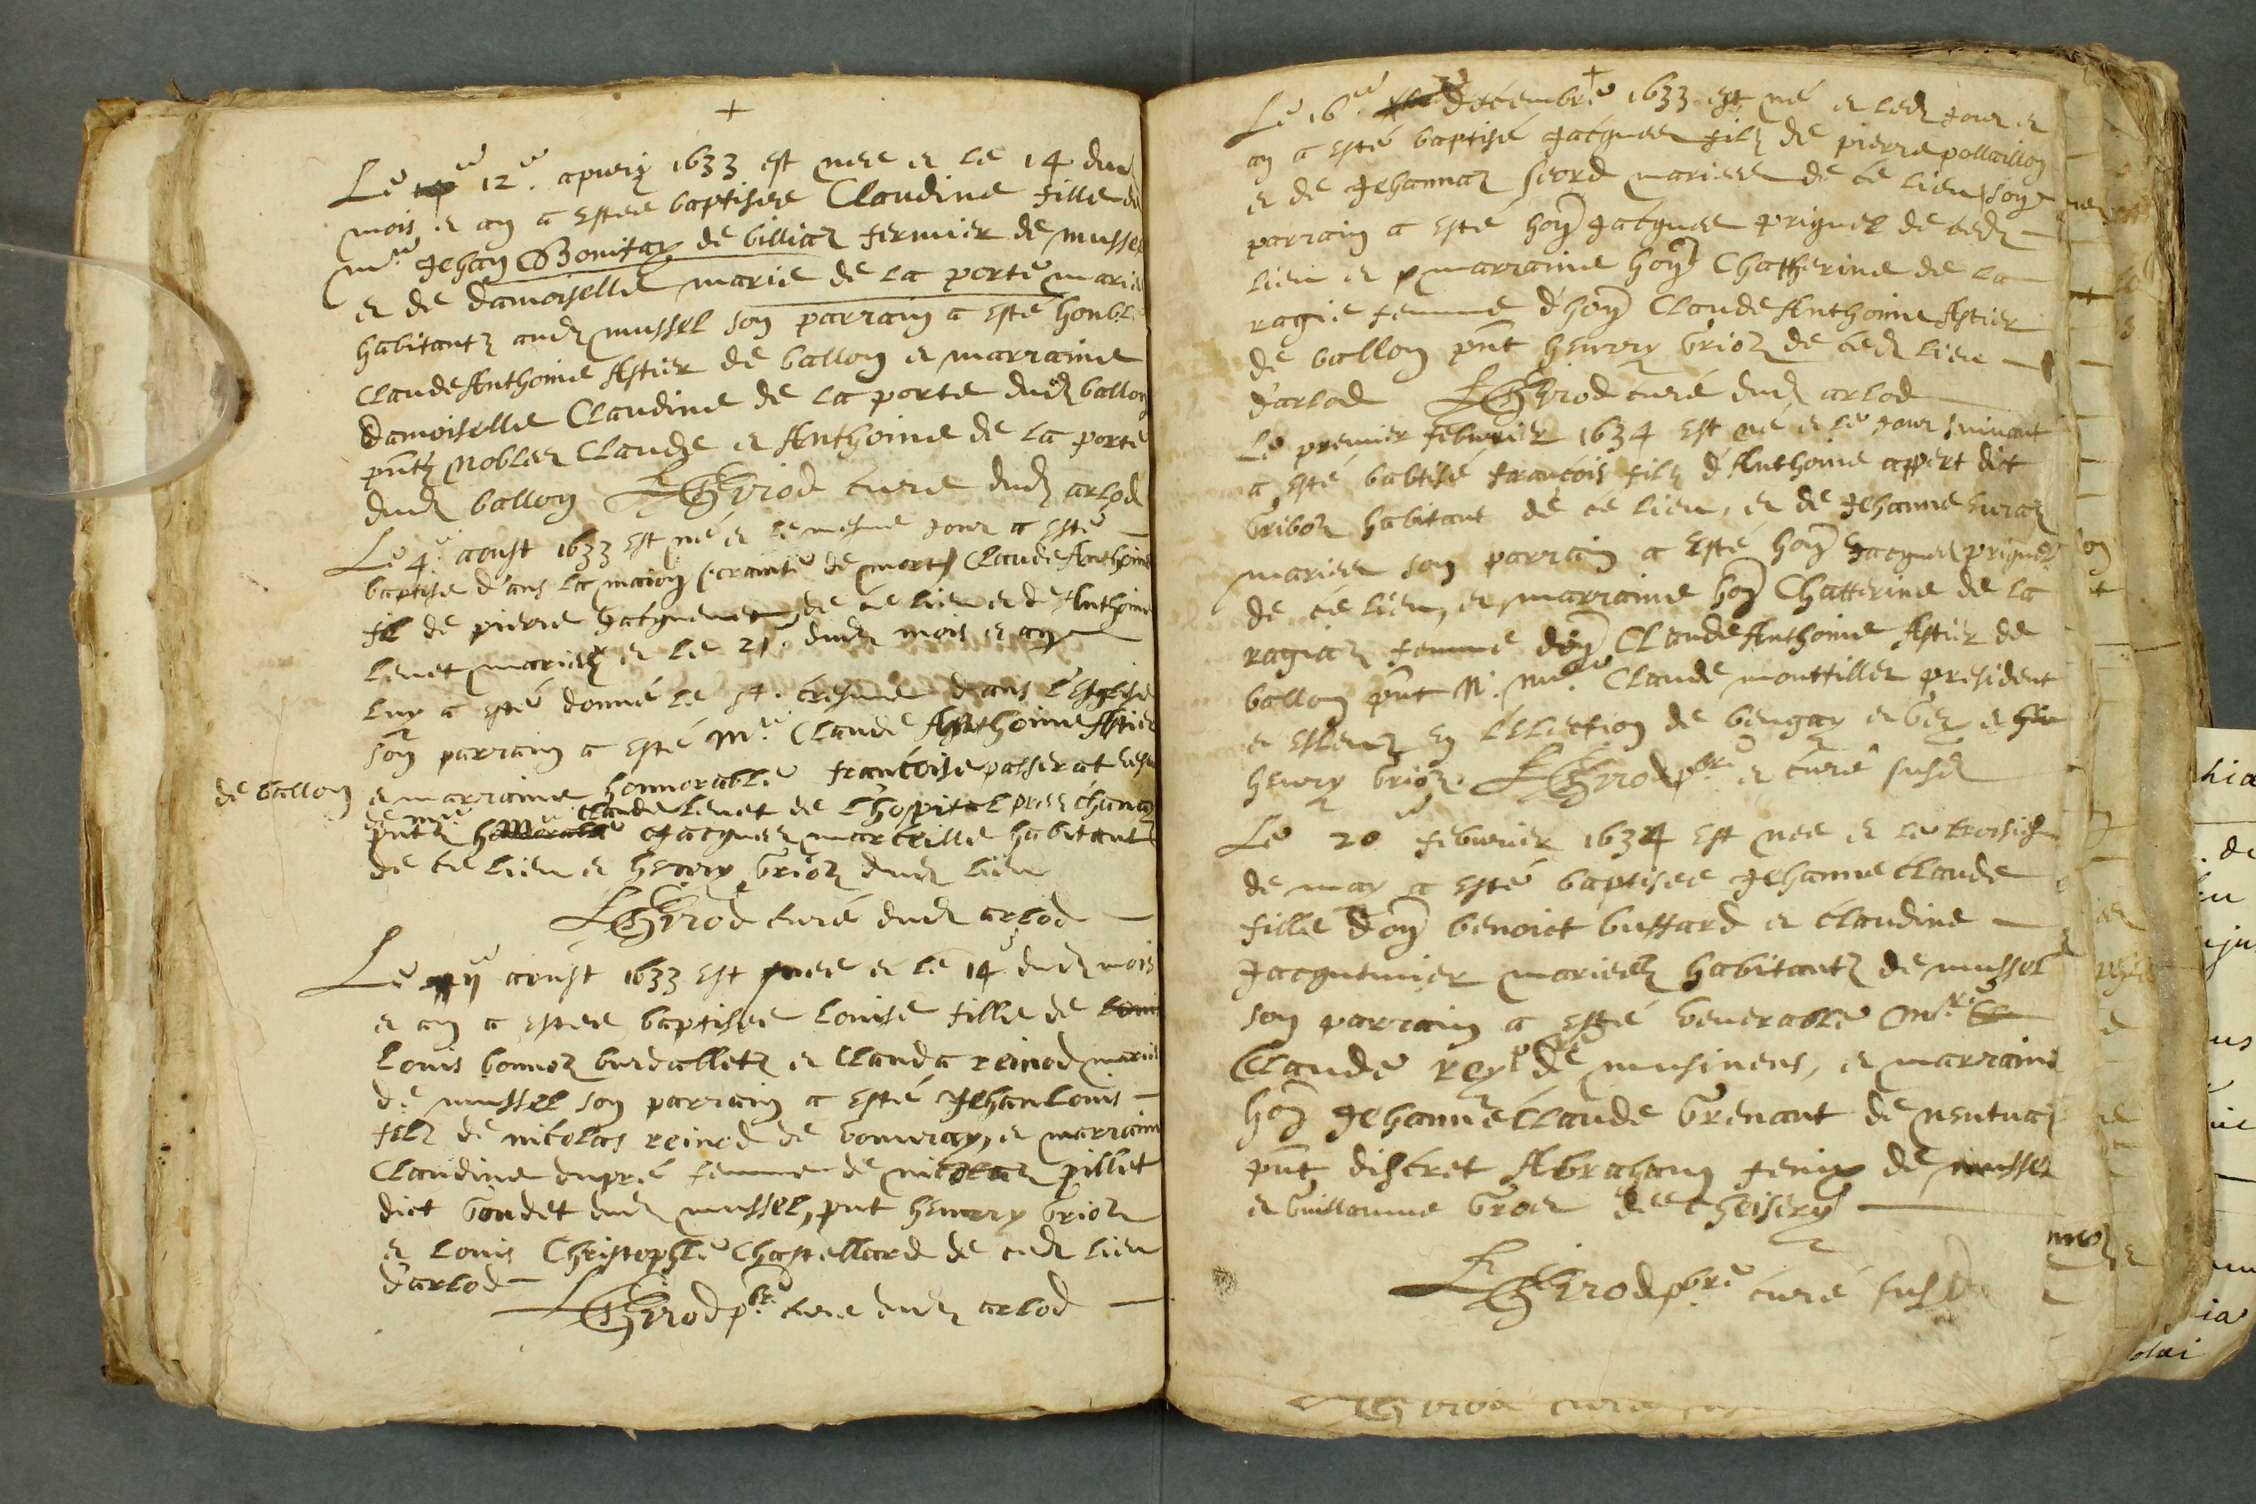 +
Le 12e. apvril 1633 est nee et le 14 dud
mois et an a estee baptisee Claudine fille de
Mre Jehan Bonifax de billiaz fermier de mussel
et de damoiselle marie de la porte marie
habitantz aud mussel son parrain a esté honble
Claude Anthoine Astier de ballon et marraine
Damoiselle Claudine de la porte dud ballon
pntz Nobles Claude et Anthoine de la porte
dud ballon LGirod curé dud arlod
Le 4e. aoust 1633 est né et le mesme jour a esté
baptisé d'ans la maion (crainte de mort) Claude Anthoine
fil de pierre Jacquemet de ce lieu et d'Anthoine
Levet mariez et le 21e. dud mois et an
luy a esté donné le st. cresme d'ans l'Esglise
son parrain a esté Mre Claude Anthoine Astier
de ballon et marraine honnorable francoise passerat
pntz mre Claude Levet de l'hospital
Jacques marceille habitant
de ce lieu et henrry brioz dud lieu
LGirod curé dud arlod
Le aoust 1633 est nee et le 14e dud mois
et an a estee baptisee Louise fille de
Louis bonnoz burdalletz et Clauda reinod mariez
de mussel son parrain a esté Jehan Louis
filz de nicolas reinod de vouvray, et marraine
Claudine dupré femme de nicolas pillet
dict goudet dud mussel, pnt henrry brioz
et Louis Christophle Chastellard de cedt lieu
d'arlod
LGirod pbre curé dud arlod
+
Le 16e. decembre 1633 est né et led jour et
an a esté baptisé Jacques filz de pierre pollaillon
et de Jehannaz seord mariees de ce lieu son
parrain a esté hon Jacques prignel de ced
lieu et marraine hon Chatherine de la
ragie femme d'hon Claude Anthoine Astier
de ballon pnt henrry brioz de ced lieu
d'arlod LGirod curé dud arlod
Le premier febvrier 1634 est né et le jour suivant
a esté babtisé francois filz d'Anthoine appert dict
habitant de ce lieu, et de Jehanne
mariee son parrain a esté hon Jacques prignel
de ce lieu, et marraine hon Chatterine de la
ragiaz femme d'hon Claude Anthoine Astier de
ballon pnt N. Mre. Claude monttillet president
et esleuz en l'eslection de beugay et
henrry brioz. LGirod pbre et curé susd
Le 20e febvrier 1634 est nee et le troisie
de may a esté baptisee Jehanne Claude
fille d'on benoict buffard et Claudine
Jacquemier mariez habitantz de mussel
son parrain a esté venerable Mre.
Claude rey de musinens, et marraine
hon Jehanne Claude Grenant de
pnt discret Abraham fenix de mussel
et Guillaume Gros de Cheisery
LGirod pbre curé susd